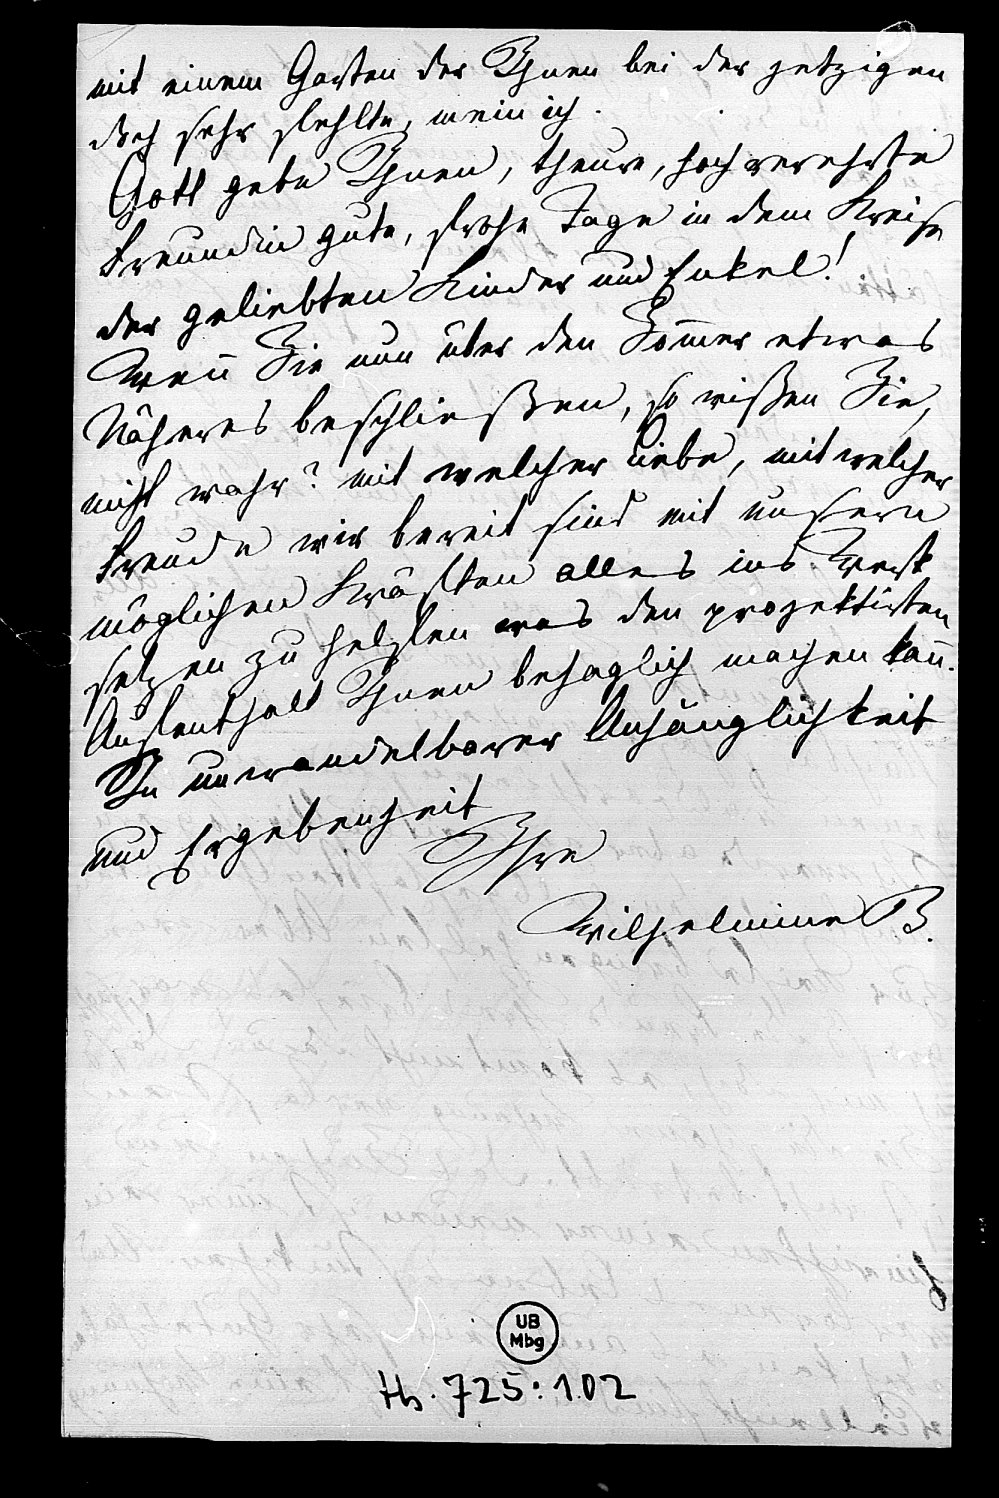 mit einem Garten der Ihnen bei der jetzigen
doch sehr fehlte, mein ich.
Gott gebe Ihnen, theure, hochverehrte
Freundin gute, frohe Tage in dem Kreise
der geliebten Kinder und Enkel!
Wenn̄ Sie nun über den Som̄er etwas
Näheres beschließen, so wißen Sie,
nicht wahr? mit welcher Liebe, mit welcher
Freude wir bereit sind mit unsern
möglichen Kräften alles ins Werk
setzen zu helfen was den projektirten
Aufenthalt Ihnen behaglich machen kan̄.
In unwandelbarer Anhänglichkeit
und Ergebenheit
Ihre
Wilhelmine B.
UB
Mbg
Hs. 725:102